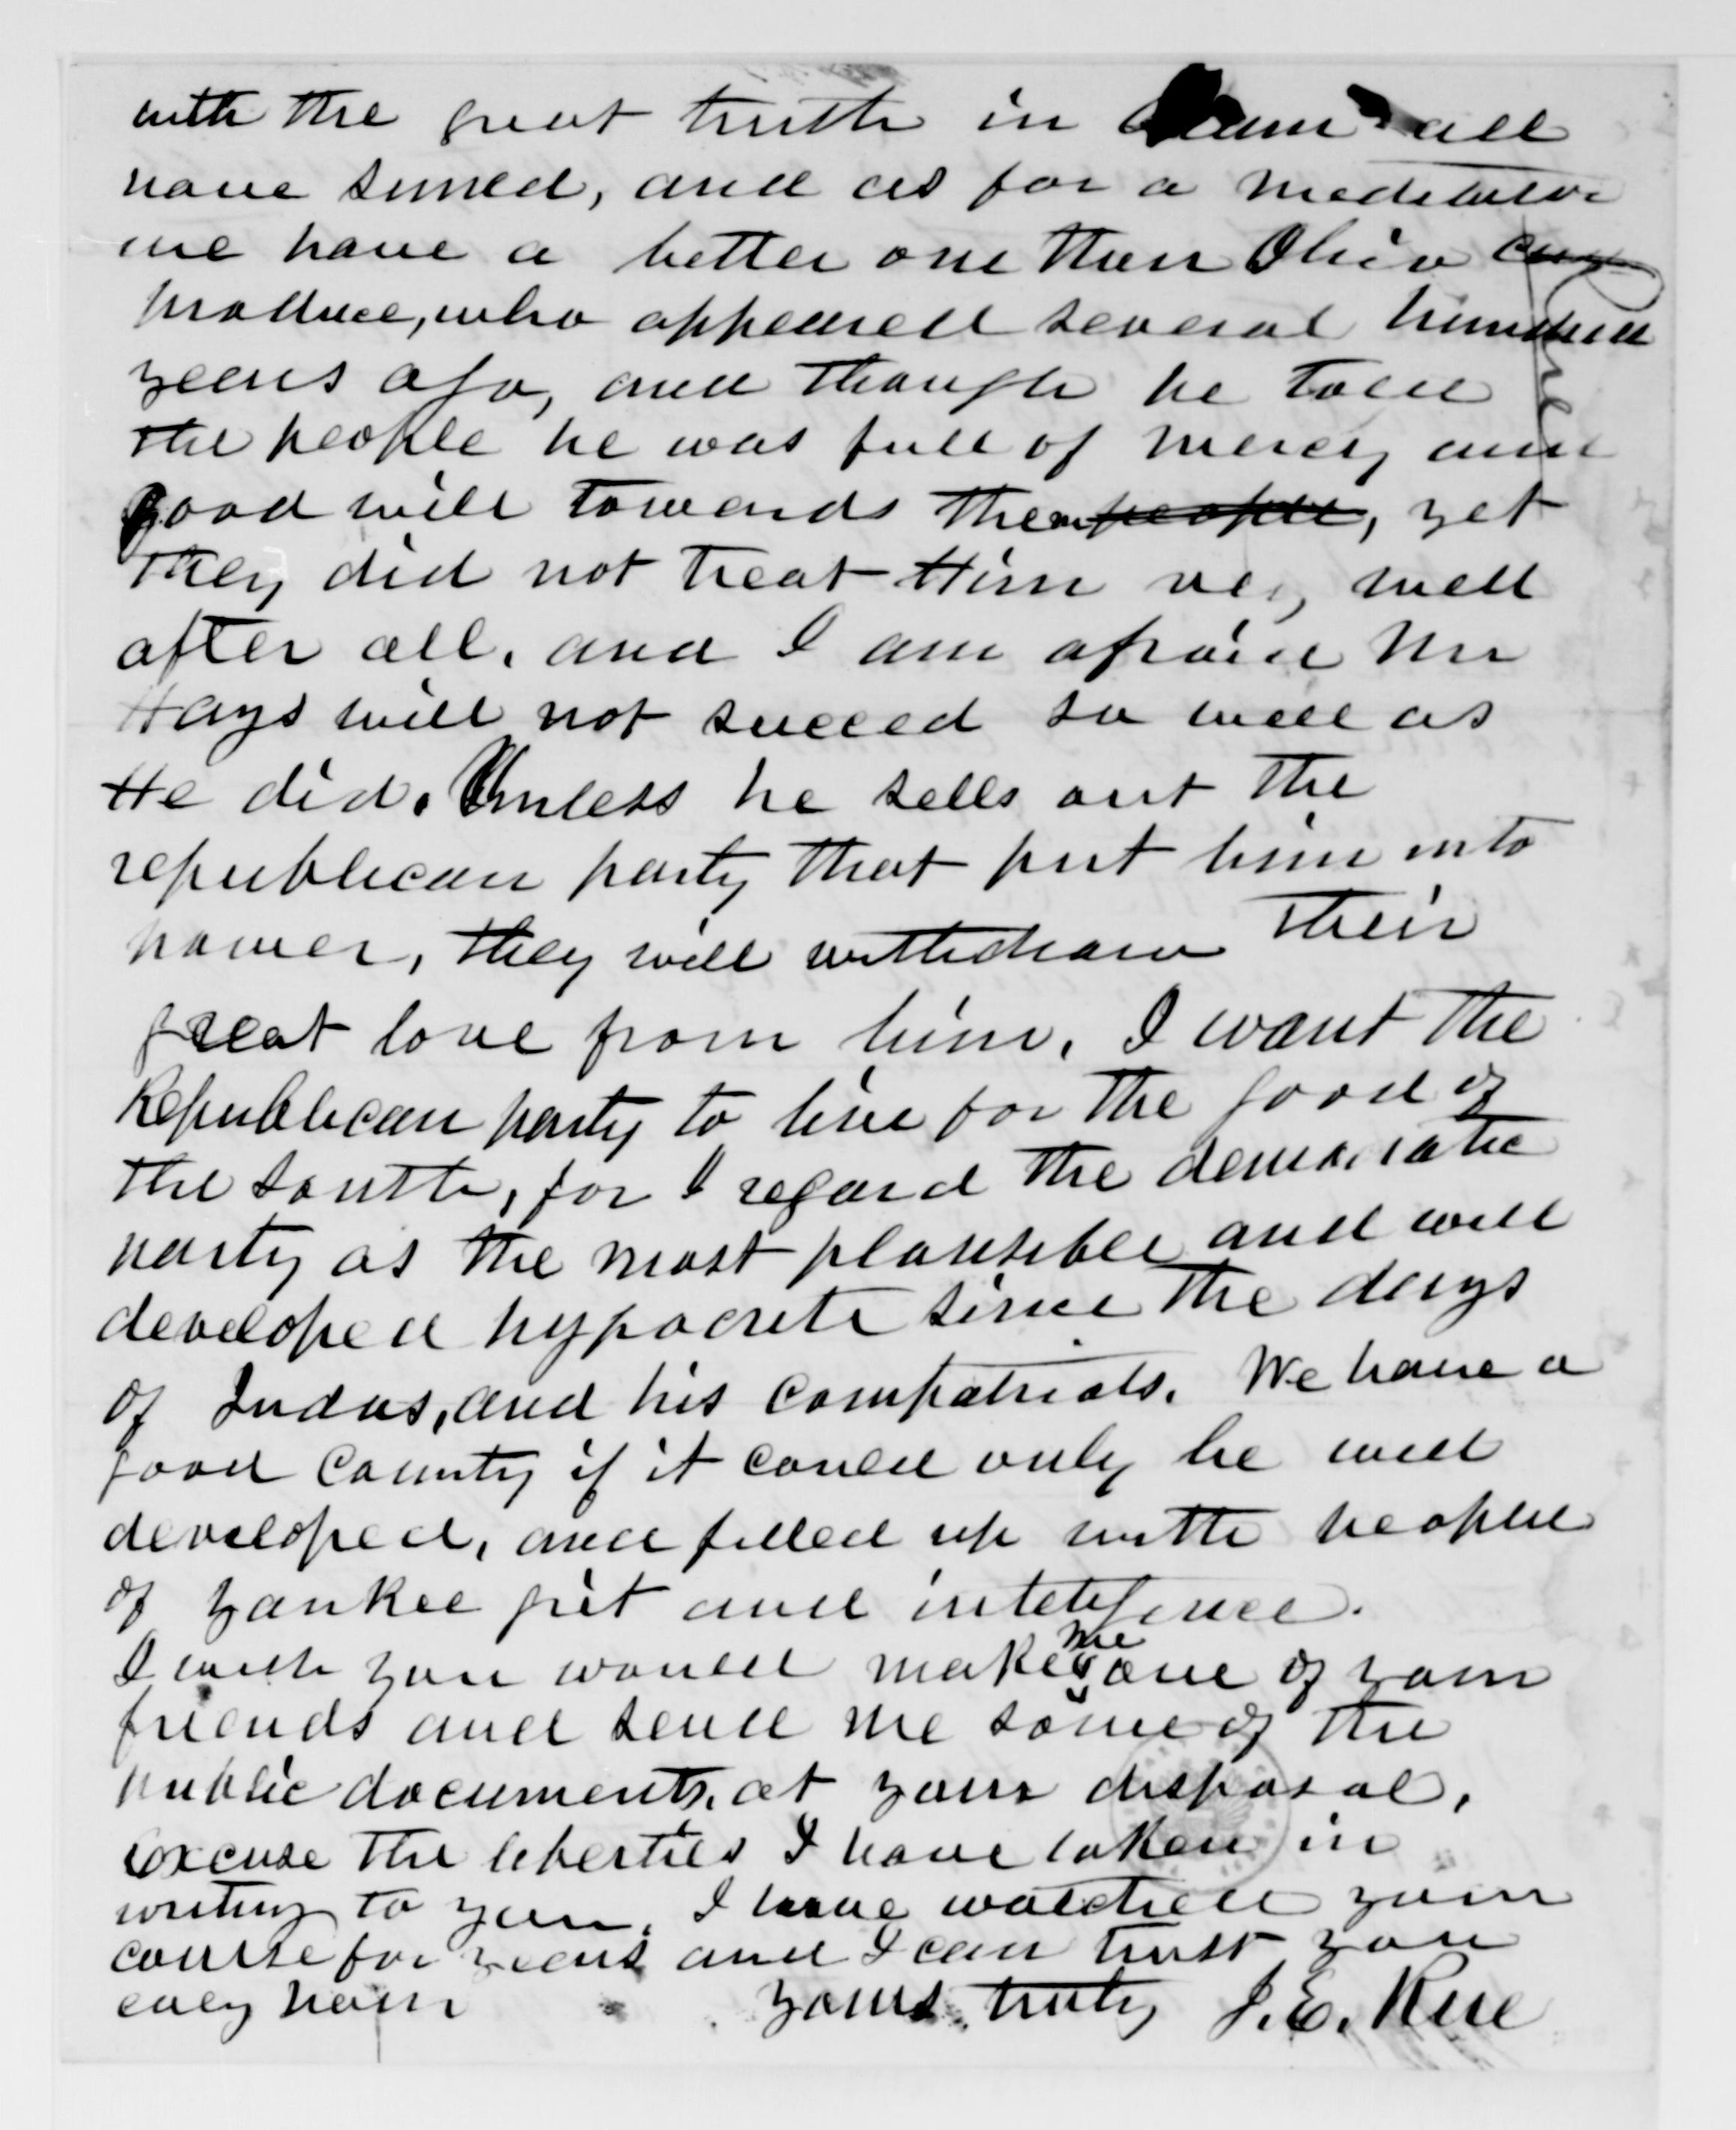 with the great truth in Adam all
have sinned, and as for a meditator
we have a better one than Ohio can
produce, who appeared several hundred
years ago, and though he told
the people he was full of mercy and
good will towards them people, yet
they did not treat Him very well
after all, and I am afraid Mr
Hays will not succeed so well as
He did. Unless he sells out the
republican party that put him into
power, they will withdraw their
great love from him. I want the
Republican party to live for the good of
the South, for I regard the democratic
party as the most plausible and well
developed hypocrite since the days
of Judas, and his compatriots. We have a
good County if it could only be well
developed, and filled up with people
of yankee grit and intelligence.
I wish you would make me one of your
friends and send me some of the
public documents, at your disposal,
excuse the liberties I have taken in
writing to you. I have watched your
course for years and I can trust you
evey hour
yours truly J. E.